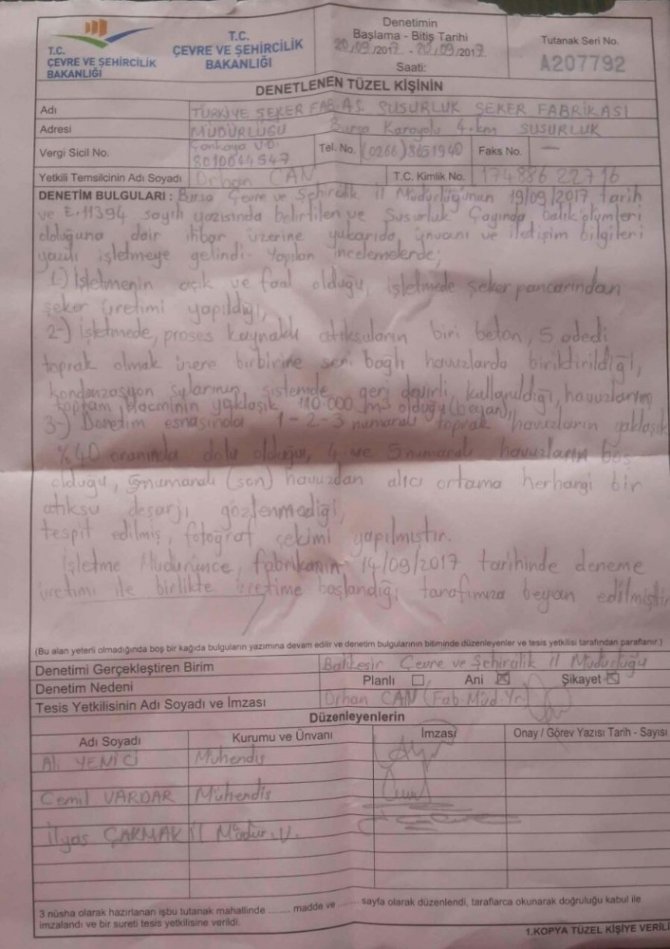 T.C.
ÇEVRE VE ŞEHİRCİLİK
BAKANLIĞI
T.C.
ÇEVRE VE ŞEHİRCİLİK
BAKANLIĞI
Denetimin
Başlama - Bitiş Tarihi
20/09/2017 - 20/09/2017
Saati:
Tutanak Seri No.
A207792
DENETLENEN TÜZEL KİŞİNİN
Adı TÜRKİYE ŞEKER FAB. AŞ. SUSURLUK ŞEKER FABRİKASI
Adresi MÜDÜRLÜĞÜ Bursa Karayolu 4.km SUSURLUK
Vergi Sicil No. Çankaya V.D. Tel. No. (0266) 8651940 Faks No. —
Yetkili Temsilcinin Adı Soyadı Orhan CAN T.C. Kimlik No. 17488622716
DENETİM BULGULARI : Bursa Çevre ve Şehircilik İl Müdürlüğünün 19/09/2017 tarih
ve E.11394 sayılı yazısında belirtilen ve Susurluk Çayında balık ölümleri
olduğuna dair ihbar üzerine yukarıda ünvanı ve iletişim bilgileri
yazılı işletmeye gelindi. Yapılan incelemelerde;
1-) İşletmenin açık ve faal olduğu, işletmede şeker pancarından
şeker üretimi yapıldığı,
2-) İşletmede, proses kaynaklı atıksuların biri beton, 5 adedi
toprak olmak üzere birbirine seri bağlı havuzlarda biriktirildiği,
kondenzasyon sularının, sistemde geri devirli kullanıldığı, havuzların
toplam hacminin yaklaşık 110 000 m³ olduğu (beyan),
3-) Denetim esnasında 1-2-3 numaralı toprak havuzların yaklaşık
%40 oranında dolu olduğu, 4 ve 5 numaralı havuzların boş
olduğu, 5 numaralı (son) havuzdan alıcı ortama herhangi bir
atıksu deşarjı gözlenmediği,
tespit edilmiş, fotoğraf çekimi yapılmıştır.
İşletme Müdürünce, fabrikanın 14/09/2017 tarihinde deneme
üretimi ile birlikte üretime başlandığı tarafımıza beyan edilmiştir
(Bu alan yeterli olmadığında boş bir kağıda bulguların yazımına devam edilir ve denetim bulgularının bitiminde düzenleyenler ve tesis yetkilisi tarafından paraflanır.)
Denetimi Gerçekleştiren Birim Balıkesir Çevre ve Şehircilik İl Müdürlüğü
Denetim Nedeni Planlı Ani Şikayet
Tesis Yetkilisinin Adı Soyadı ve İmzası Orhan CAN (Fab. Müd. Yr.)
Düzenleyenlerin
Adı Soyadı Kurumu ve Ünvanı İmzası Onay / Görev Yazısı Tarih - Sayısı
Ali YENİCİ Mühendis
Cemil VARDAR Mühendis
İlyas ÇAKMAK İl Müdür V.
3 nüsha olarak hazırlanan işbu tutanak mahallinde ........ madde ve ........ sayfa olarak düzenlendi, taraflarca okunarak doğruluğu kabul ile
imzalandı ve bir sureti tesis yetkilisine verildi.
1.KOPYA TÜZEL KİŞİYE VERİL